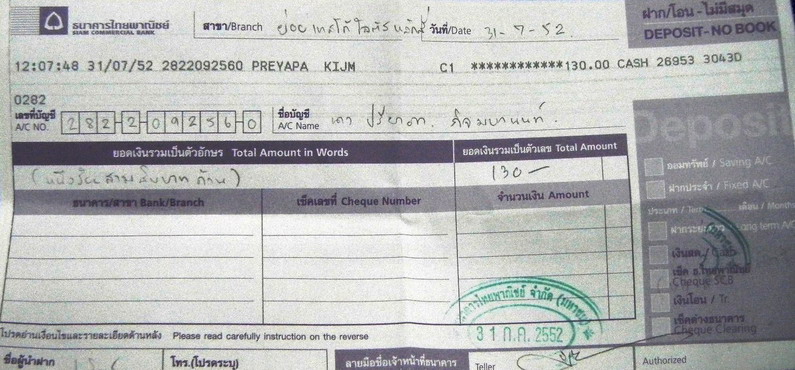 ธนาคารไทยพาณิชย์
SIAM COMMERCIAL BANK
สาขา/Branch ย่อย เทสโก้ โลตัส หลักสี่ วันที่/Date 31-7-52
ฝาก/โอน - ไม่มีสมุด
DEPOSIT - NO BOOK
12:07:48 31/07/52 2822092560 PREYAPA KIJM C1 ************130.00 CASH 26953 3043D
0282
เลขที่บัญชี
A/C NO. 282-2-09256-0
ชื่อบัญชี
A/C Name
Deposit
ยอดเงินรวมเป็นตัวอักษร Total Amount in Words
ยอดเงินรวมเป็นตัวเลข Total Amount
(หนึ่งร้อยสามสิบบาทถ้วน)
130-
ธนาคาร/สาขา Bank/Branch
เช็คเลขที่ Cheque Number
จำนวนเงิน Amount
ออมทรัพย์ / Saving A/C
ฝากประจำ / Fixed A/C
ประเภท / Term เดือน / Months
Long term A/C
เงินสด
Cheque SCB
เงินโอน / Tr
เช็คต่างธนาคาร
Cheque Clearing
ธนาคารไทยพาณิชย์ จำกัด (มหาชน)
31 ก.ค. 2552
โปรดอ่านเงื่อนไขและรายละเอียดด้านหลัง Please read carefully instruction on the reverse
ชื่อผู้นำฝาก
โทร.(โปรดระบุ)
ลายมือชื่อเจ้าหน้าที่ธนาคาร
Teller
Authorized